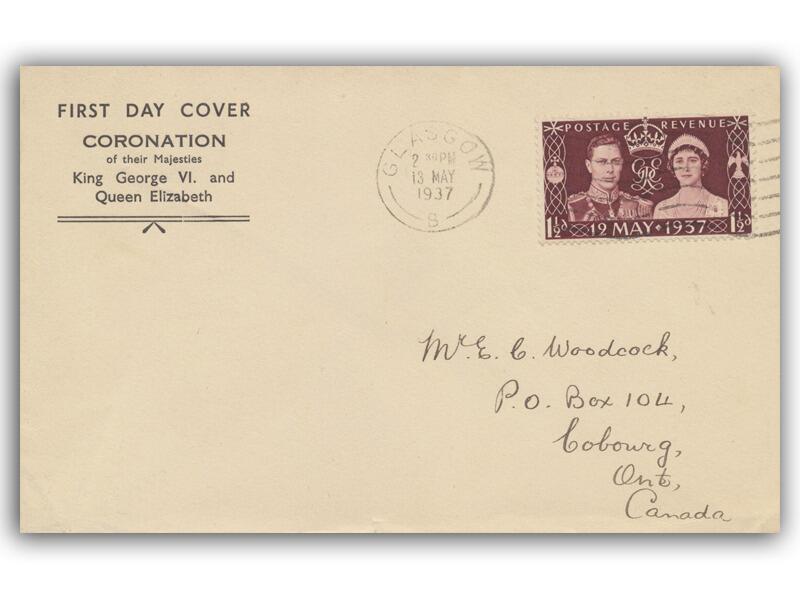 FIRST DAY COVER
CORONATION
of their Majesties
King George VI. and
Queen Elizabeth
GLASGOW
2 30PM
13 MAY
1937
S
POSTAGE REVENUE
GRE
1½d 12 MAY 1937 1½d
Mr. E. C. Woodcock,
P.O. Box 104,
Cobourg,
Ont,
Canada